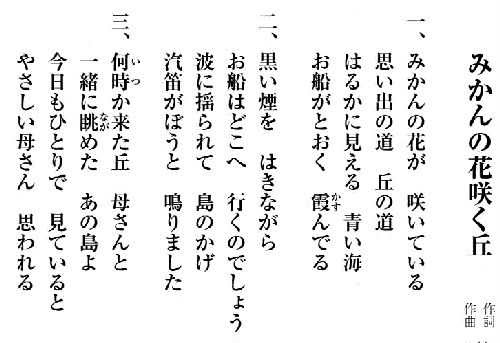 みかんの花咲く丘
作詞
作曲
一、みかんの花が 咲いている
思い出の道 丘の道
はるかに見える 青い海
お船がとおく 霞んでる
かす
二、黒い煙を はきながら
お船はどこへ 行くのでしょう
波に揺られて 島のかげ
汽笛がぼうと 鳴りました
三、何時か来た丘 母さんと
いつ
一緒に眺めた あの島よ
なが
今日もひとりで 見ていると
やさしい母さん 思われる